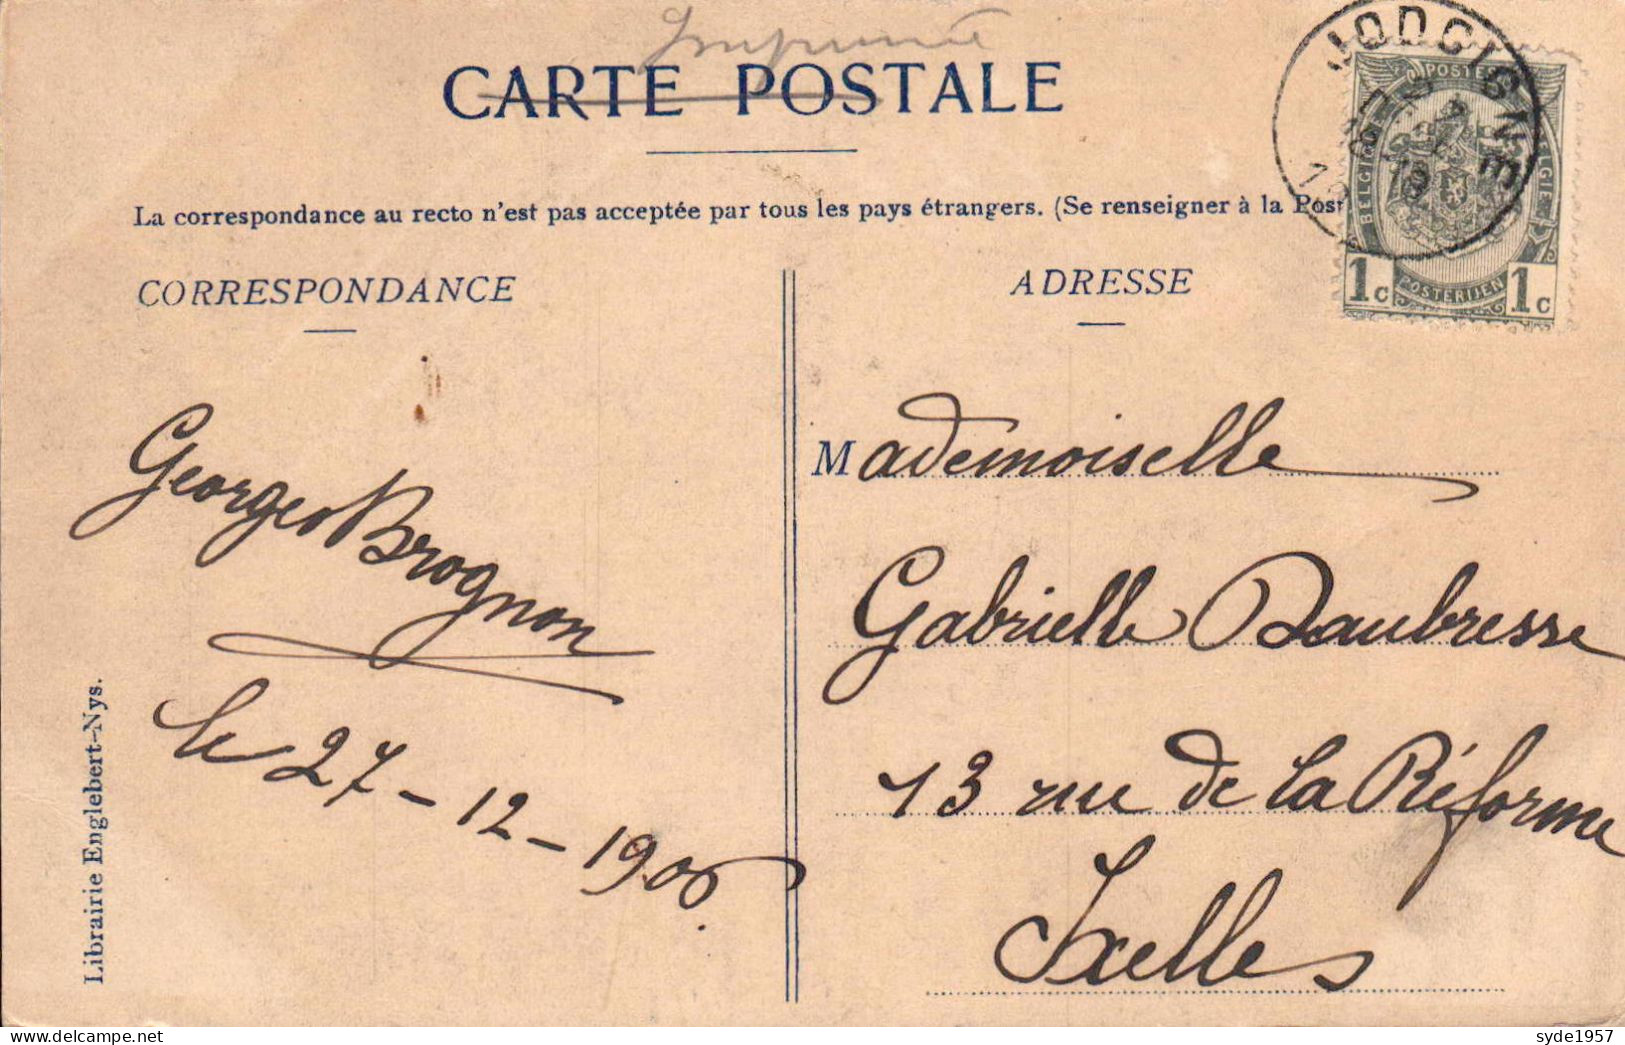 Imprimé
CARTE POSTALE
JODOIGNE
POSTES
BELGIQUE
BELGIË
1c POSTERIJEN 1c
La correspondance au recto n'est pas acceptée par tous les pays étrangers. (Se renseigner à la Post
CORRESPONDANCE
Georges Brognon
le 27-12-1906.
Librairie Englebert-Nys.
ADRESSE
Mademoiselle
Gabrielle Daubresse
13 rue de la Réforme
Ixelles
syde1957